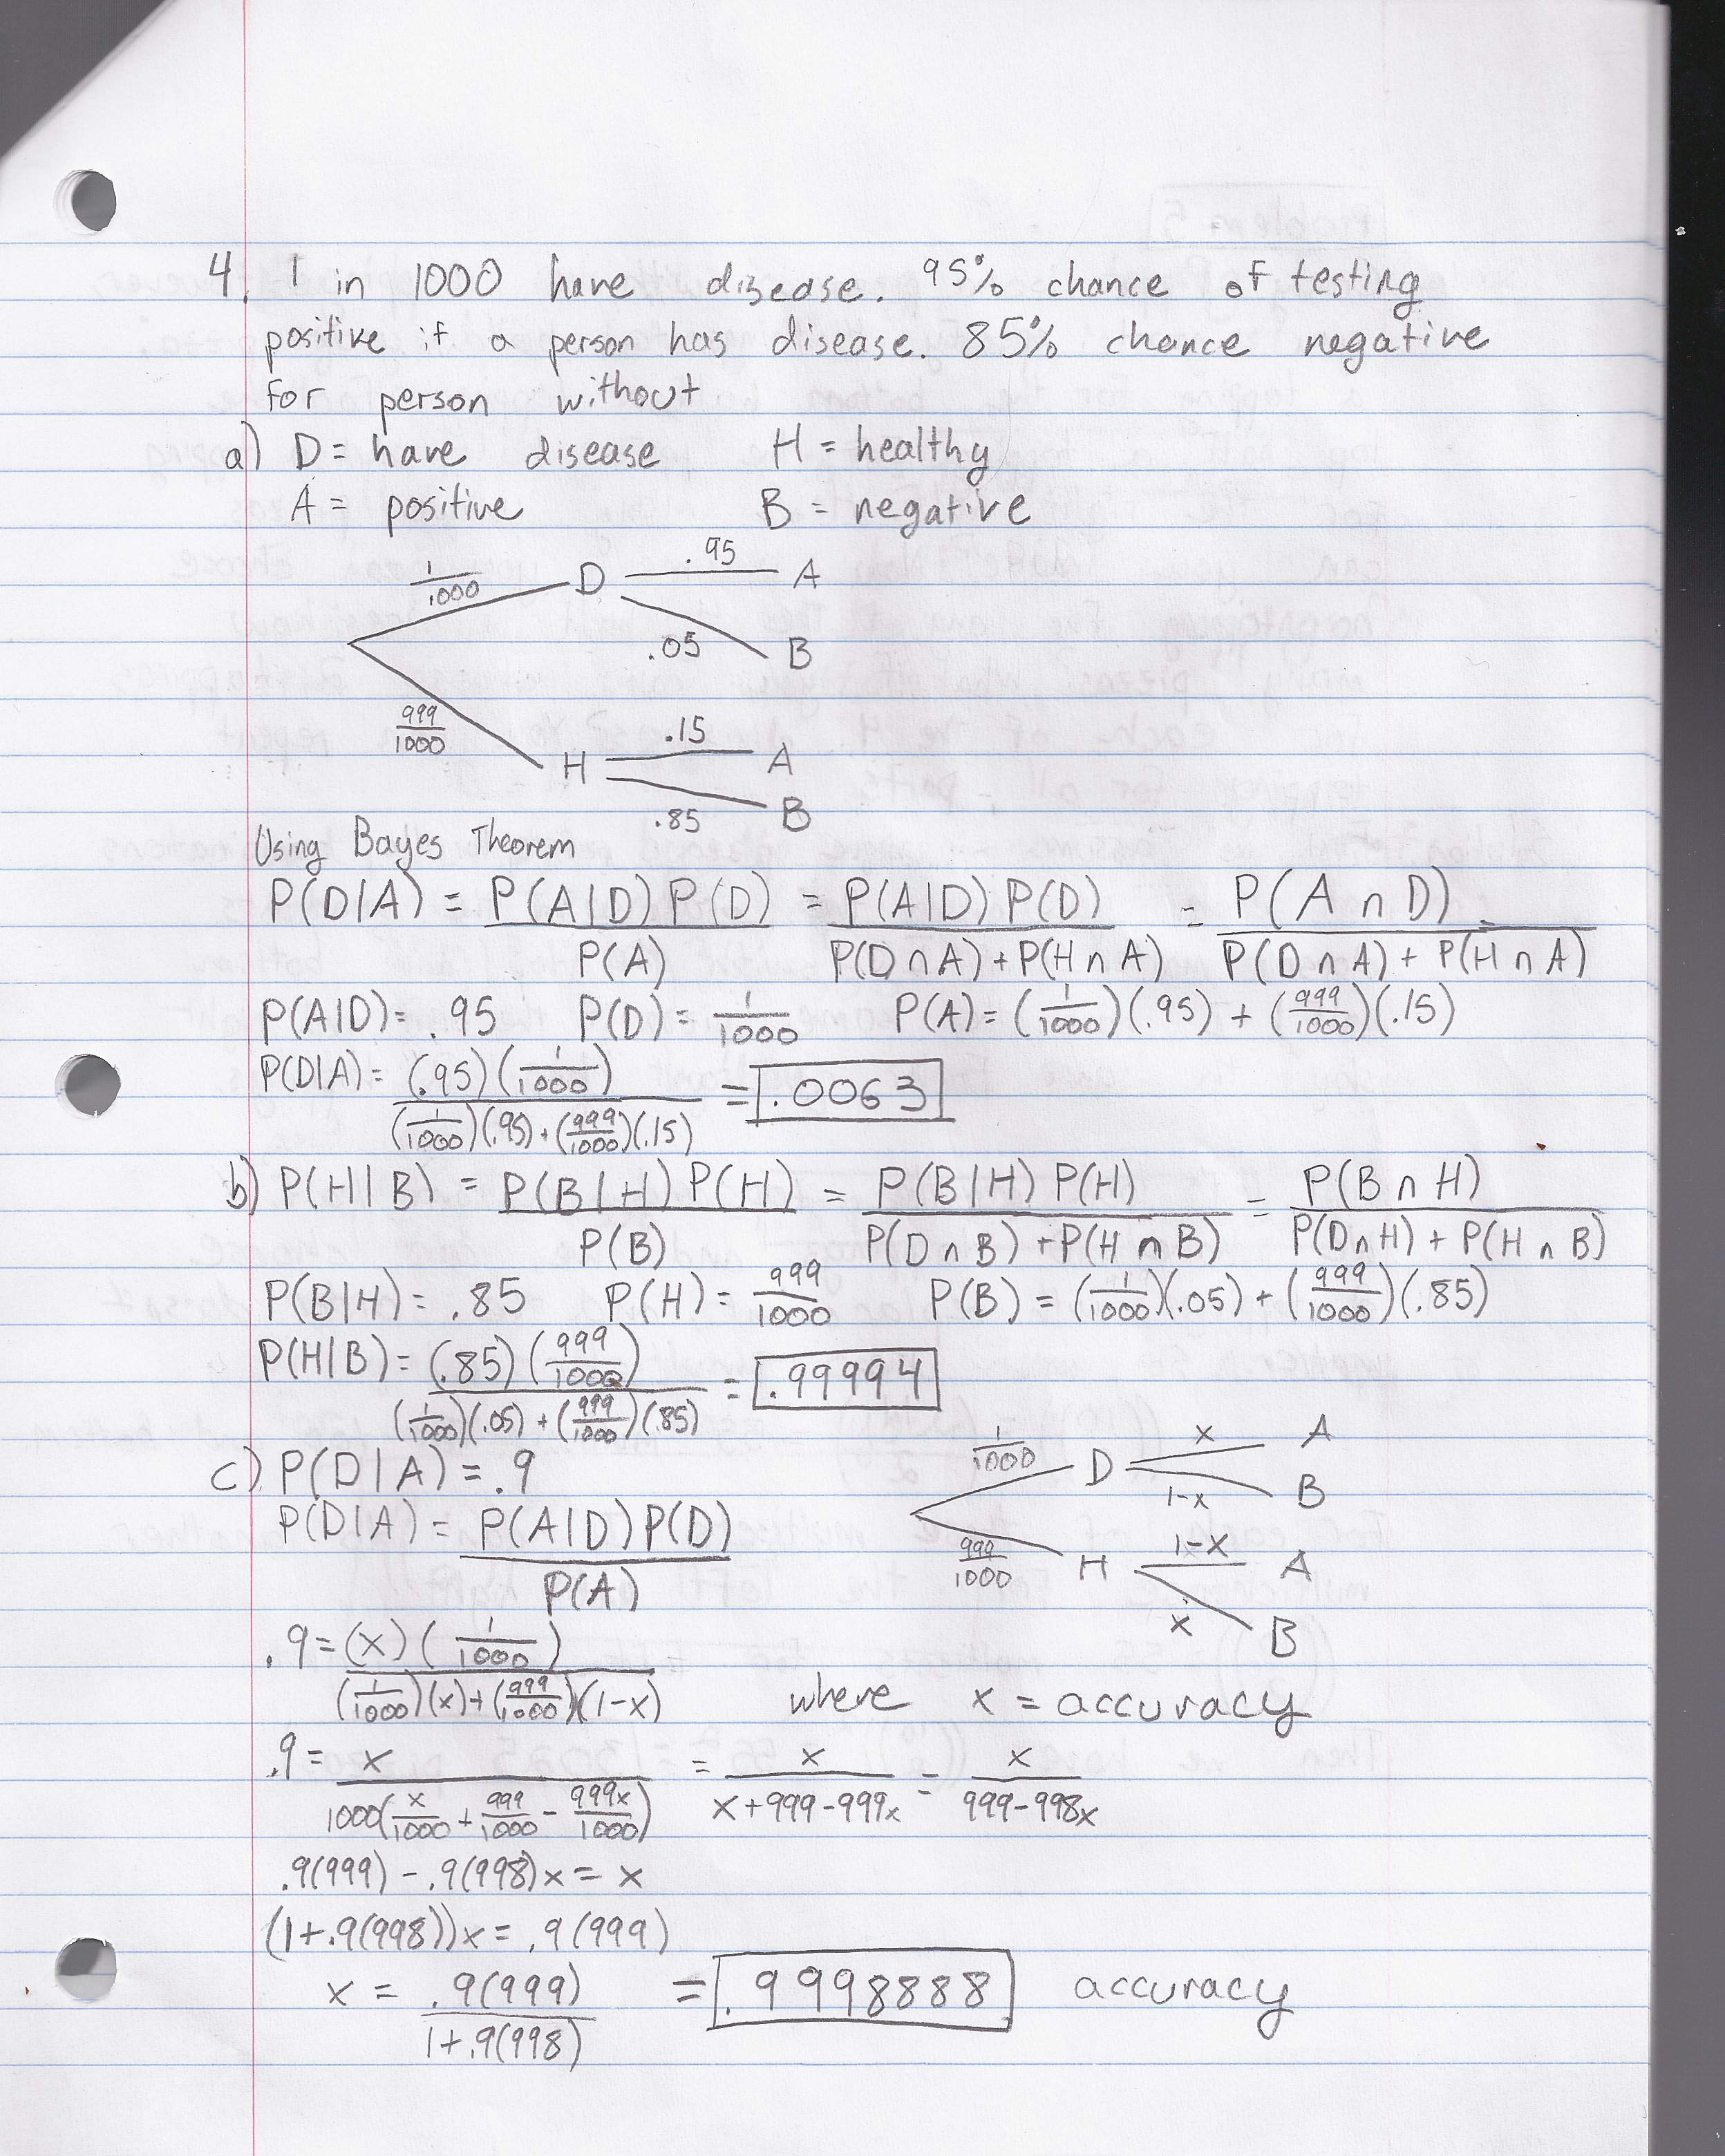 4. 1 in 1000 have disease. 95% chance of testing
positive if a person has disease. 85% chance negative
for person without
a) D = have disease H = healthy
A = positive B = negative
1/1000 D .95 A
.05 B
999/1000 H .15 A
.85 B
Using Bayes Theorem
P(D|A) = P(A|D) P(D) / P(A) = P(A|D) P(D) / P(D∩A) + P(H∩A) = P(A∩D) / P(D∩A) + P(H∩A) =
P(A|D) = .95 P(D) = 1/1000 P(A) = (1/1000)(.95) + (999/1000)(.15)
P(D|A) = (.95)(1/1000) / (1/1000)(.95) + (999/1000)(.15) = .0063
b) P(H|B) = P(B|H) P(H) / P(B) = P(B|H) P(H) / P(D∩B) + P(H∩B) = P(B∩H) / P(D∩H) + P(H∩B)
P(B|H) = .85 P(H) = 999/1000 P(B) = (1/1000)(.05) + (999/1000)(.85)
P(H|B) = (.85)(999/1000) / (1/1000)(.05) + (999/1000)(.85) = .99994
c) P(D|A) = .9
P(D|A) = P(A|D) P(D) / P(A)
1/1000 D x A
1-x B
999/1000 H 1-x A
x B
.9 = (x)(1/1000) / (1/1000)(x) + (999/1000)(1-x) where x = accuracy
.9 = x / 1000(x/1000 + 999/1000 - 999x/1000) = x / x+999-999x = x / 999-998x
.9(999) - .9(998)x = x
(1+.9(998))x = .9(999)
x = .9(999) / 1+.9(998) = .9998888 accuracy